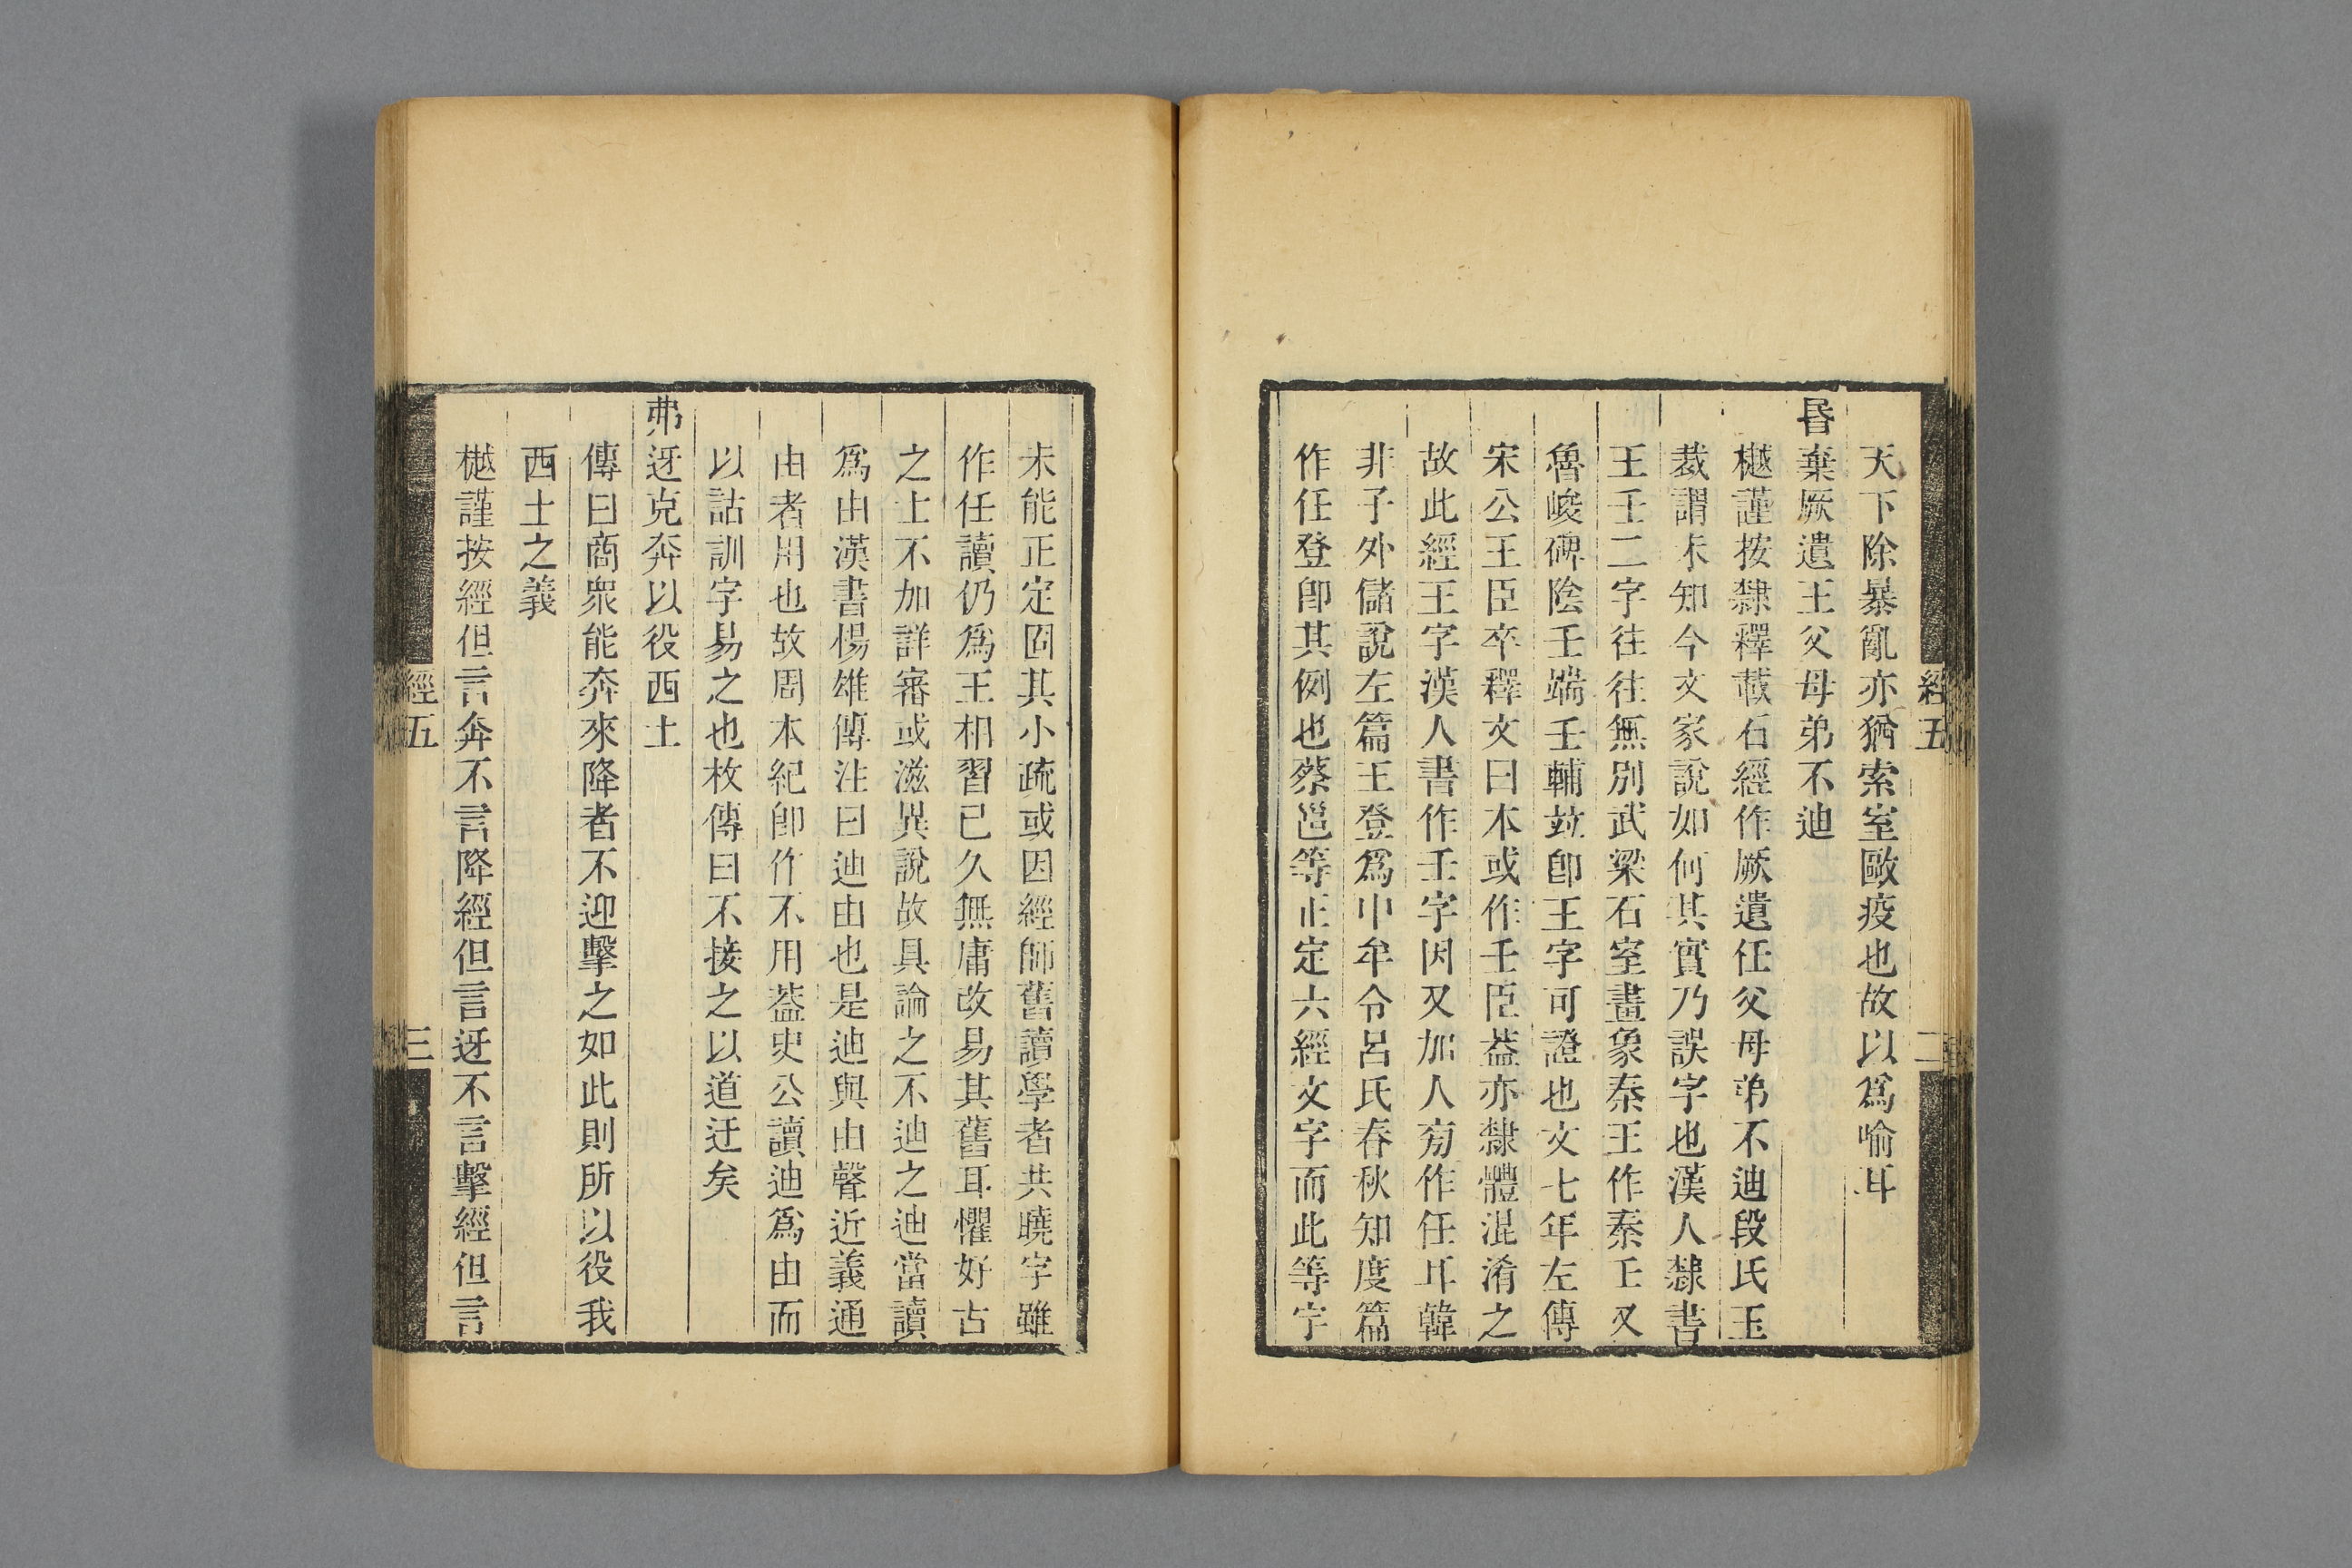 經五
二
天下除暴亂亦猶索室敺疫也故以爲喻耳
昬棄厥遺王父母弟不迪
樾謹按隸釋載石經作厥遺任父母弟不迪段氏玉
裁謂未知今文家說如何其實乃誤字也漢人隸書
王壬二字往往無別武梁石室畫象秦王作秦壬又
魯峻碑陰壬端壬輔竝卽王字可證也文七年左傳
宋公王臣卒釋文曰本或作壬臣葢亦隸體混淆之
故此經王字漢人書作壬字因又加人旁作任耳韓
非子外儲說左篇王登爲中牟令呂氏春秋知度篇
作任登卽其例也蔡邕等正定六經文字而此等字
未能正定固其小疏或因經師舊讀學者共曉字雖
作任讀仍爲王相習已久無庸改易其舊耳懼好古
之士不加詳審或滋異說故具論之不迪之迪當讀
爲由漢書楊雄傳注曰迪由也是迪與由聲近義通
由者用也故周本紀卽作不用葢史公讀迪爲由而
以詁訓字易之也枚傳曰不接之以道迂矣
弗迓克奔以役西土
傳曰商衆能奔來降者不迎擊之如此則所以役我
西土之義
樾謹按經但言奔不言降經但言迓不言擊經但言
經五
三